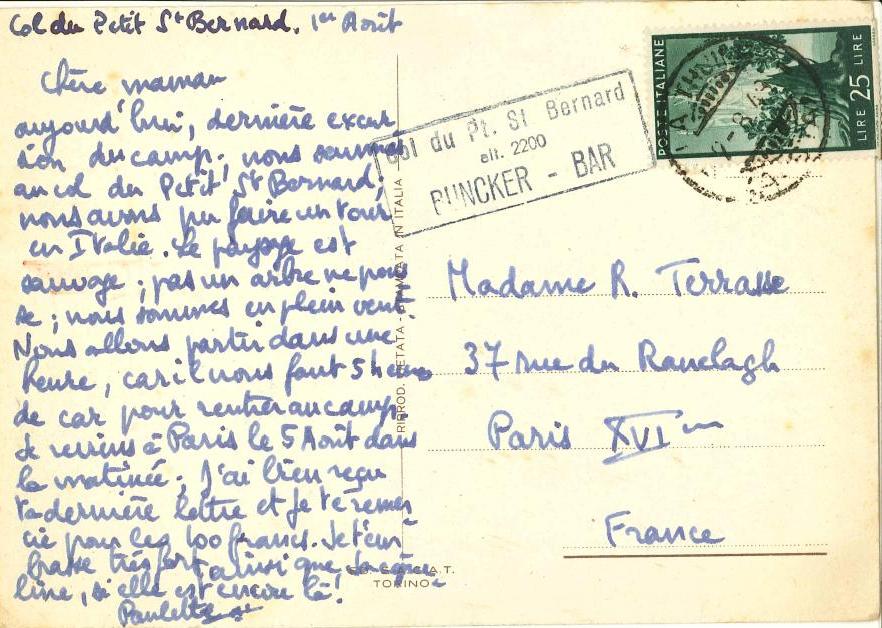 Col du Petit St Bernard, 1er Août
Chère maman
aujourd'hui, dernière excur
sion du camp; nous sommes
au col du Petit St Bernard,
nous avons pu faire un tour
en Italie. Le paysage est
sauvage; pas un arbre ne pous
se; nous sommes en plein vent.
Nous allons partir dans une
heure, car il nous faut 5 heures
de car pour rentrer au camp.
Je reviens à Paris le 5 Août dans
la matinée; J'ai bien reçu
ta dernière lettre et je te remer
cie pour les 100 francs. Je t'em
brasse très fort, ainsi que
line, si elle est encore là!
Paulette
RIPROD. VIETATA - STAMPATA IN ITALIA
TORINO
Col du Pt. St. Bernard
alt. 2200
BUNCKER - BAR
POSTE ITALIANE
LIRE 25 LIRE
Madame R. Terrasse
37 rue du Ranelagh
Paris XVIme
France